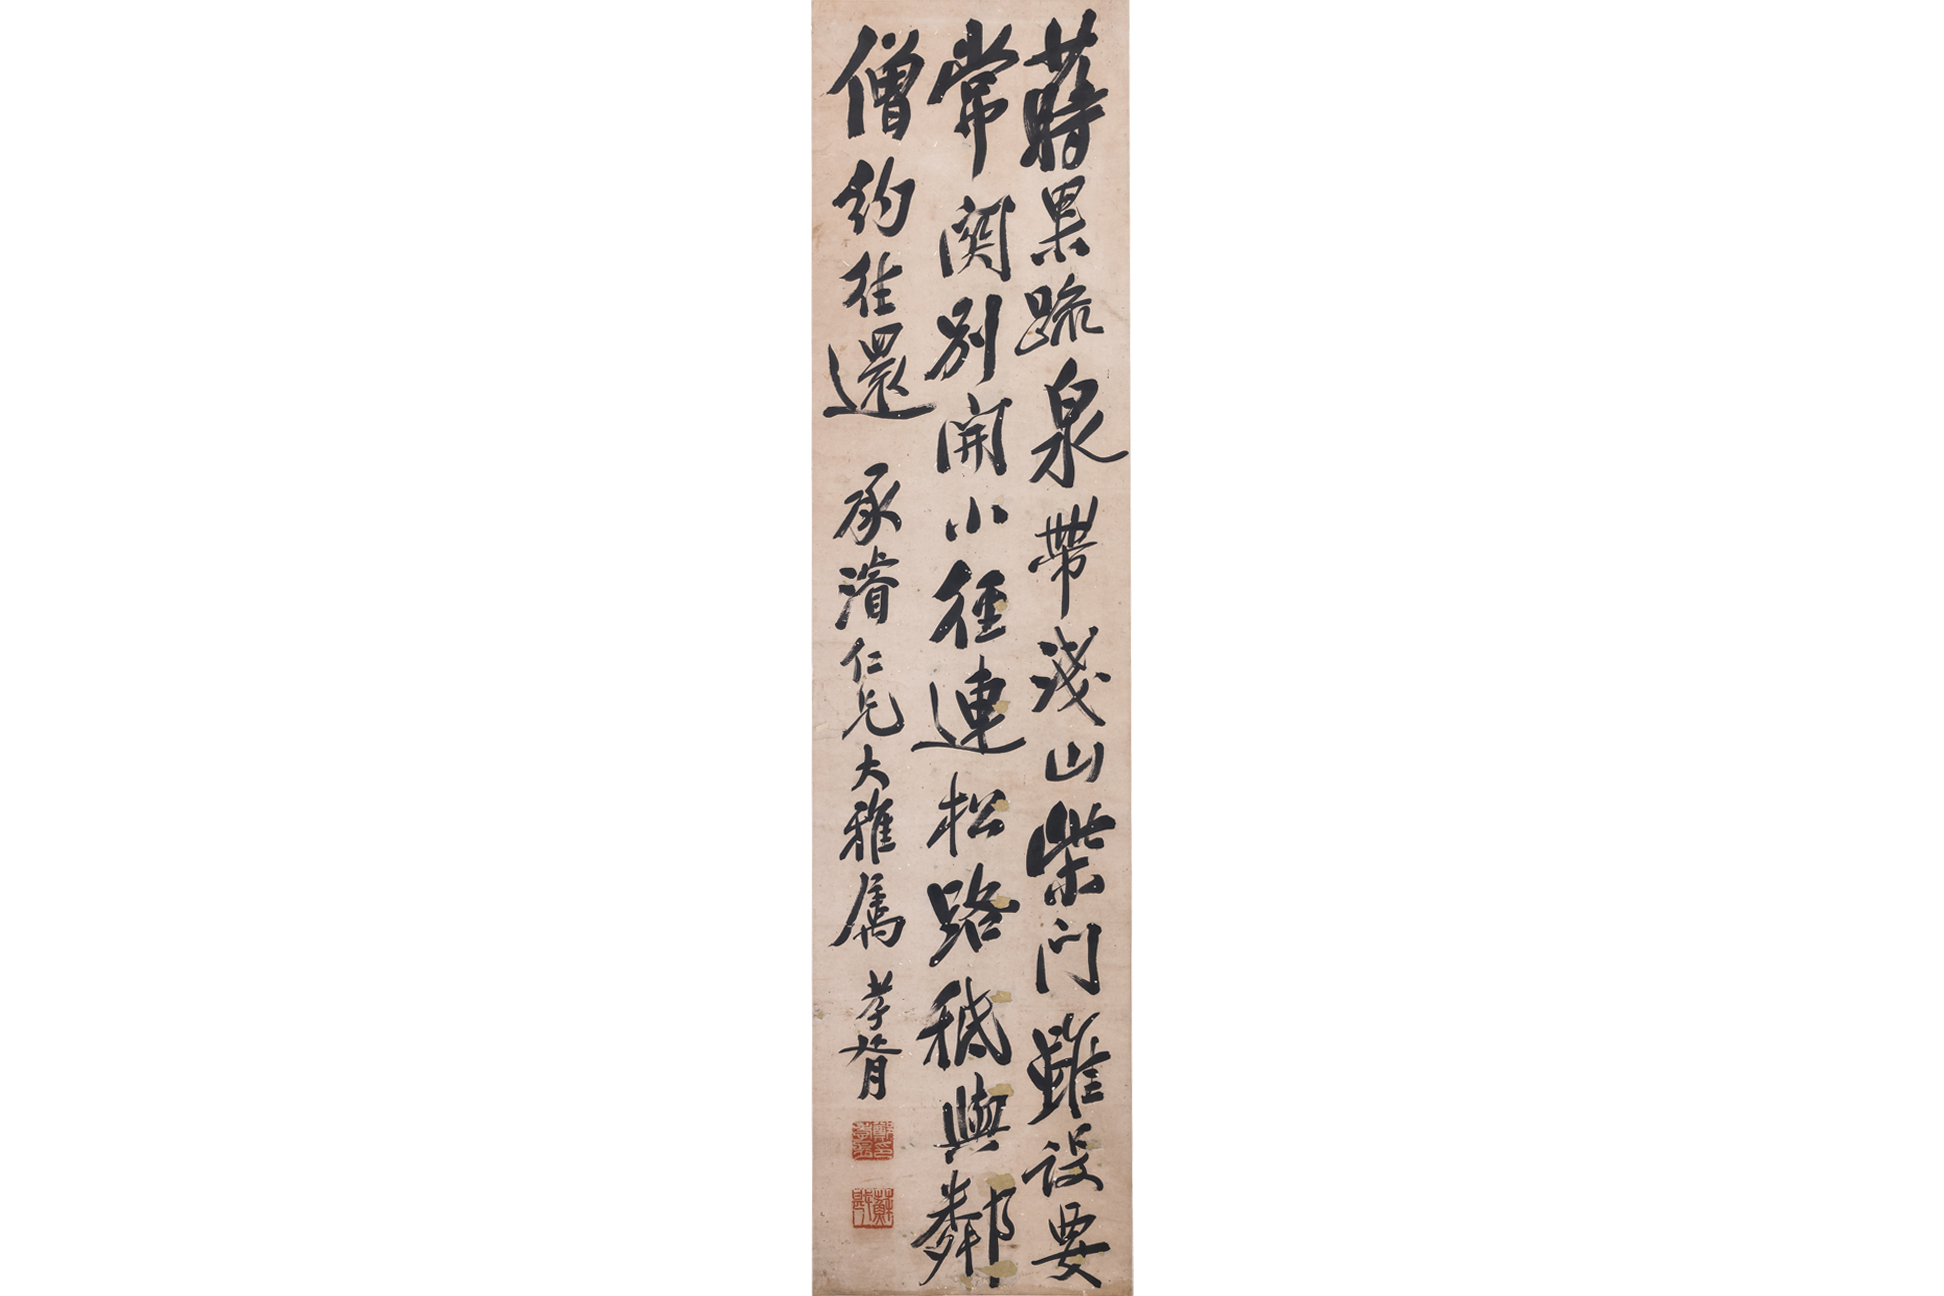 蒔果疏泉帶淺山柴門雖設要
常関別開小徑連松路秪與鄰
僧約往還 承濬仁兄大雅属 孝胥